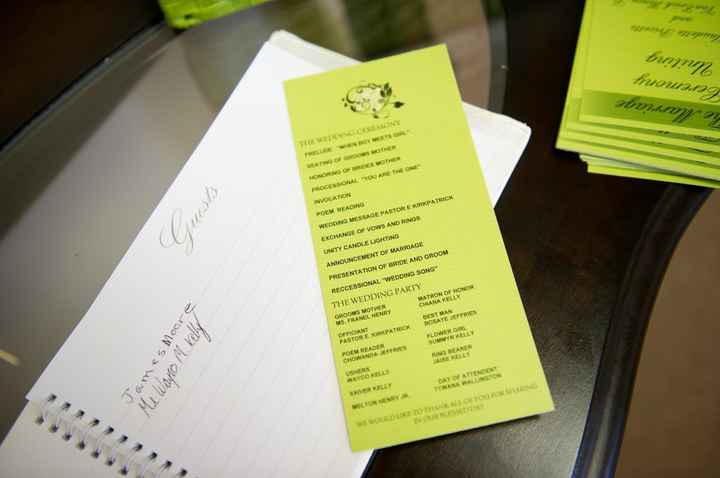 THE WEDDING CEREMONY
PRELUDE "WHEN BOY MEETS GIRL"
SEATING OF GROOMS MOTHER
HONORING OF BRIDES MOTHER
PROCESSIONAL "YOU ARE THE ONE"
INVOLATION
POEM READING
WEDDING MESSAGE PASTOR E KIRKPATRICK
EXCHANGE OF VOWS AND RINGS
UNITY CANDLE LIGHTING
ANNOUNCEMENT OF MARRIAGE
PRESENTATION OF BRIDE AND GROOM
RECCESSIONAL "WEDDING SONG"
THE WEDDING PARTY
GROOMS MOTHER
MS. FRANEL HENRY
OFFICIANT
PASTOR E. KIRKPATRICK
POEM READER
CHOWANDA JEFFRIES
USHERS
WAYCO KELLY
XAIVER KELLY
MELTON HENRY JR.
MATRON OF HONOR
CHANA KELLY
BEST MAN
BOSAYE JEFFRIES
FLOWER GIRL
SUMMYR KELLY
RING BEARER
JAIRE KELLY
DAY OF ATTENDENT
TYWANA WALLINGTON
WE WOULD LIKE TO THANK ALL OF YOU FOR SHARING
IN OUR BLESSED DAY
Guests
James Moore
Kelly
The Marriage
Ceremony
Uniting
and